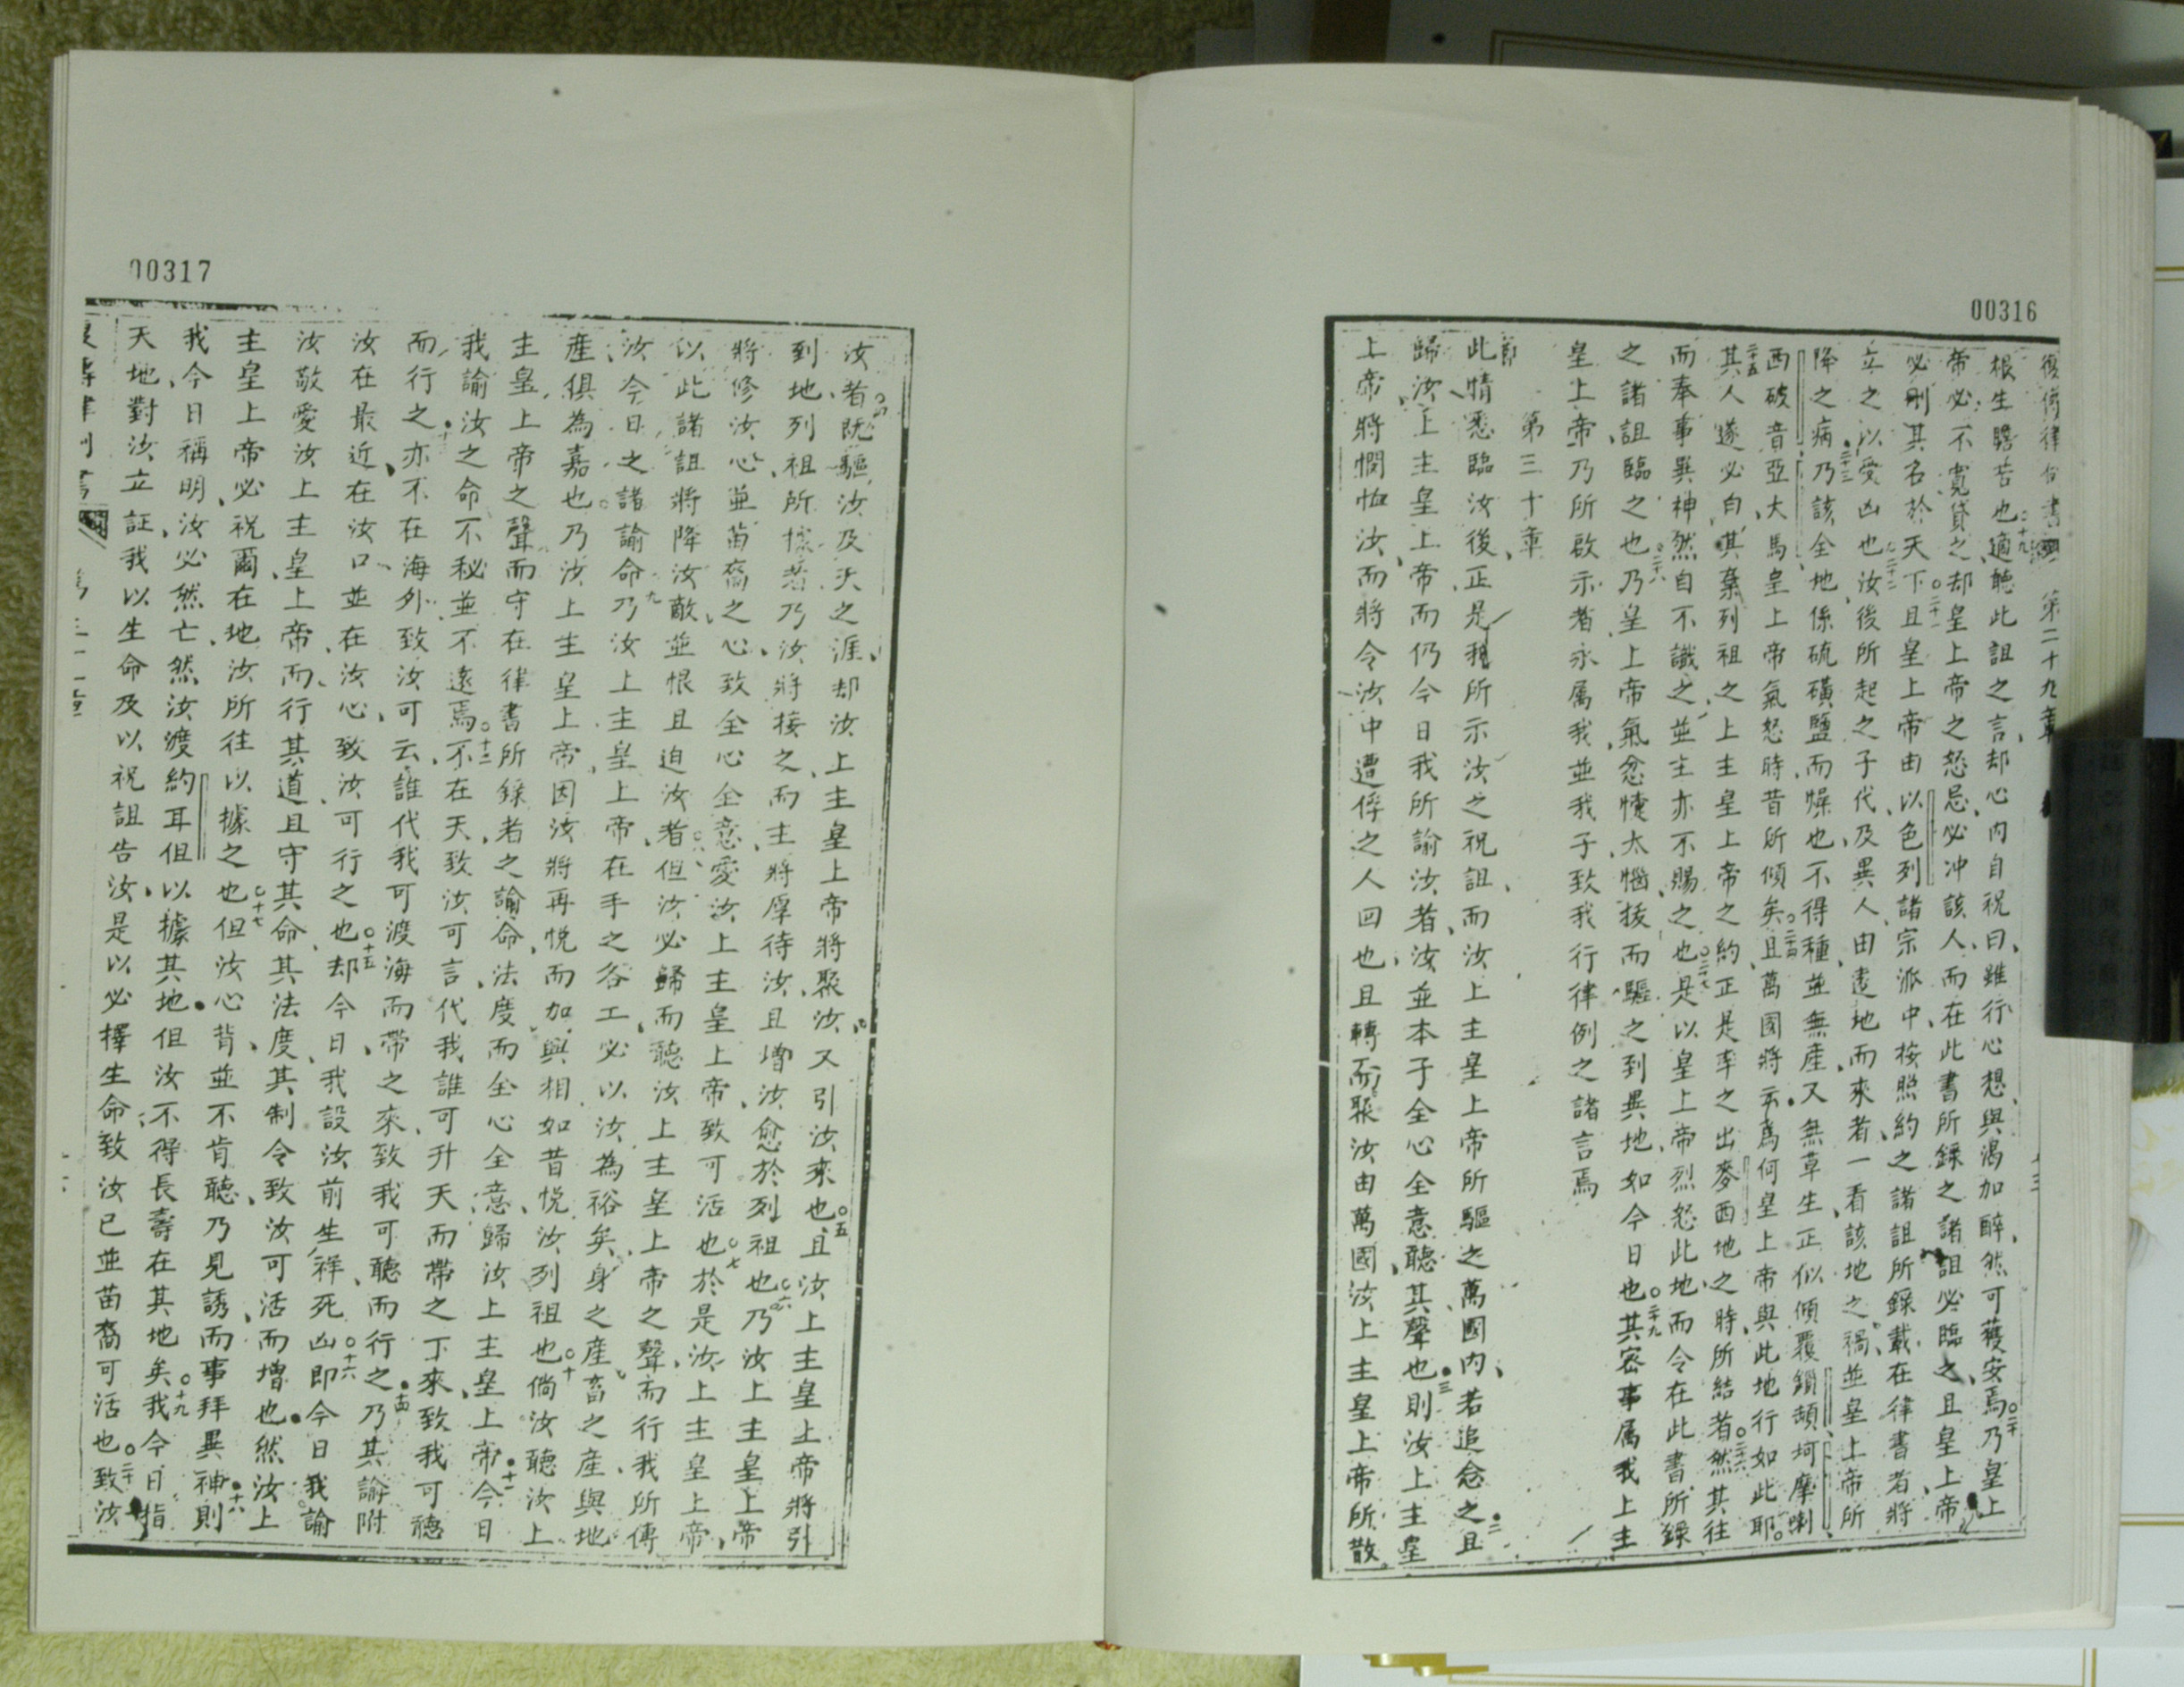 00316
復傳律例書 第二十九章
根生膽苦也十九適聽此詛之言却心内自祝曰雖行心想與渴加醉然可獲安焉二十乃皇上
帝必不寬貸之却皇上帝之怒忌必冲該人而在此書所錄之諸詛必臨之且皇上帝
必刪其名於天下二十一且皇上帝由以色列諸宗派中按照約之諸詛所錄載在律書者將
立之以受凶也二十二汝後所起之子代及異人由遠地而來者一看該地之禍並皇上帝所
降之病二十三乃該全地係硫磺鹽而燥也不得種並無產又無草生正似傾覆鎖頡坷摩喇
西破音亞大馬皇上帝氣怒時昔所傾矣二十四且萬國將云爲何皇上帝與此地行如此耶
二十五其人遂必白其棄列祖之上主皇上帝之約正是率之出麥西地之時所結者二十六然其往
而奉事異神然自不識之並主亦不賜之也二十七是以皇上帝烈怒此地而令在此書所錄
之諸詛臨之也二十八乃皇上帝氣忿悽太惱拔而驅之到異地如今日也二十九其密事属我上主
皇上帝乃所啟示者永属我並我子致我行律例之諸言焉
第三十章
節此情悉臨汝後正是我所示汝之祝詛而汝上主皇上帝所驅之萬國内若追念之二且
歸汝上主皇上帝而仍今日我所諭汝者汝並本子全心全意聽其聲也三則汝上主皇
上帝將憫恤汝而將令汝中遭俘之人回也且轉而聚汝由萬國汝上主皇上帝所散
00317
汝者四既驅汝及天之涯却汝上主皇上帝將聚汝又引汝來也五且汝上主皇上帝將引
到地列祖所據者乃汝將接之而主將厚待汝且增汝愈於列祖也六乃汝上主皇上帝
將修汝心並苗裔之心致全心全意愛汝上主皇上帝致可活也七於是汝上主皇上帝
以此諸詛將降汝敵並恨且迫汝者八但汝必歸而聽汝上主皇上帝之聲而行我所傳
汝今日之諸諭命九乃汝上主皇上帝在手之各工必以汝為裕矣身之產畜之產與地
產俱為嘉也乃汝上主皇上帝因汝將再悅而加與相如昔悅汝列祖也十倘汝聽汝上
主皇上帝之聲而守在律書所錄者之諭命法度而全心全意歸汝上主皇上帝十一今日
我諭汝之命不秘並不遠焉十二不在天致汝可言代我誰可升天而帶之下來致我可聽
而行之十三亦不在海外致汝可云誰代我可渡海而帶之來致我可聽而行之十四乃其諭附
汝在最近在汝口並在汝心致汝可行之也十五却今日我設汝前生祥死凶十六即今日我諭
汝敬愛汝上主皇上帝而行其道且守其命其法度其制令致汝可活而增也然汝上
主皇上帝必祝爾在地汝所往以據之也十七但汝心背並不肯聽乃見誘而事拜異神十八則
我今日稱明汝必然亡然汝渡約耳但以據其地但汝不得長壽在其地矣十九我今日指
天地對汝立証我以生命及以祝詛告汝是以必擇生命致汝己並苗裔可活也二十致汝